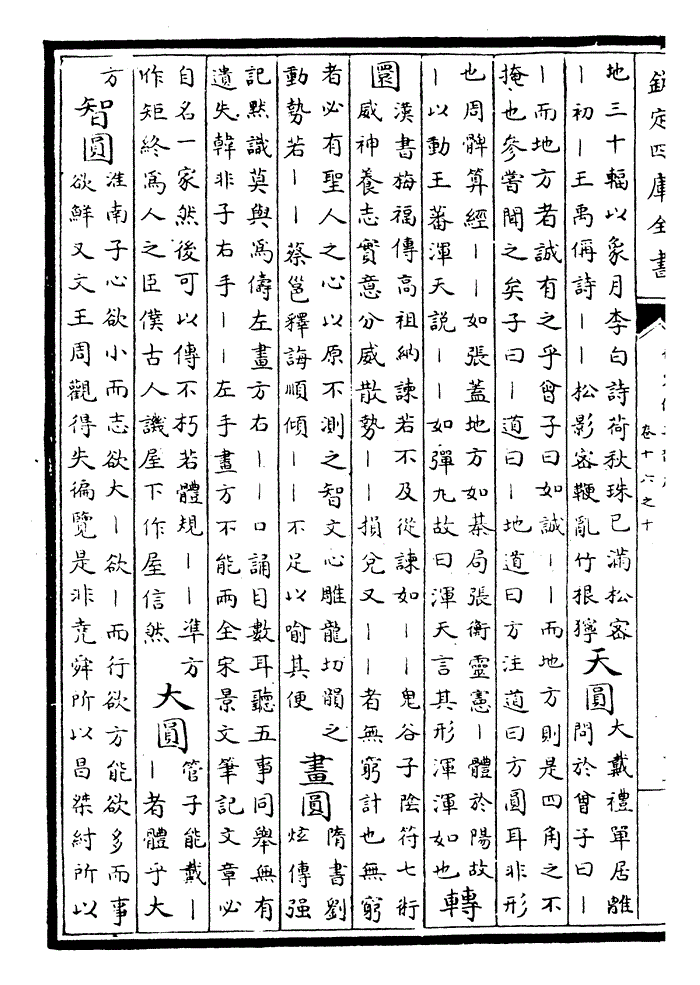 欽定四庫全書
卷十六之十
地三十輻以象月李白詩荷秋珠已滿松客
｜初｜王禹偁詩｜｜松影客鞭亂竹根獰
天圓
大戴禮單居離
問於曾子曰｜
｜而地方者誠有之乎曾子曰如誠｜｜而地方則是四角之不
掩也參嘗聞之矣子曰｜道曰｜地道曰方注道曰方圓耳非形
也周髀算經｜｜如張蓋地方如棊局張衡靈憲｜體於陽故
｜以動王蕃渾天說｜｜如彈丸故曰渾天言其形渾渾如也
轉
圜
漢書梅福傳高祖納諫若不及從諫如｜｜鬼谷子陰符七術
威神養志實意分威散勢｜｜損兌又｜｜者無窮計也無窮
者必有聖人之心以原不測之智文心雕龍切韻之
動勢若｜｜蔡邕釋誨順傾｜｜不足以喻其便
畫圓
隋書劉
炫傳强
記默識莫與為儔左畫方右｜｜口誦目數耳聽五事同舉無有
遺失韓非子右手｜｜左手畫方不能兩全宋景文筆記文章必
自名一家然後可以傳不朽若體規｜｜準方
作矩終為人之臣僕古人譏屋下作屋信然
大圓
管子能戴｜
｜者體乎大
方
智圓
淮南子心欲小而志欲大｜欲｜而行欲方能欲多而事
欲鮮又文王周觀得失徧覽是非堯舜所以昌桀紂所以